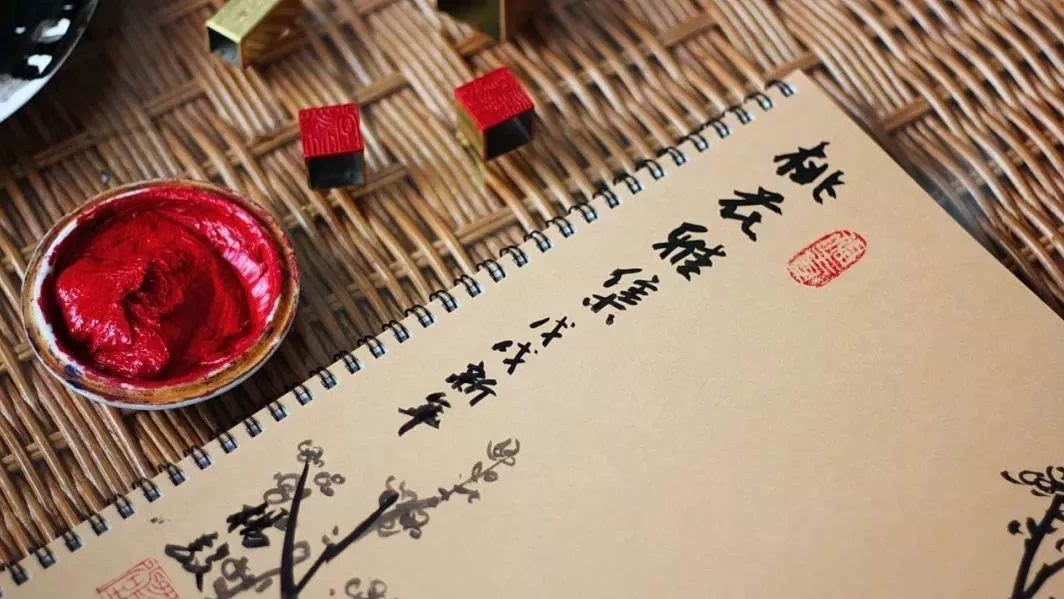 桃花雅集戊戌新年